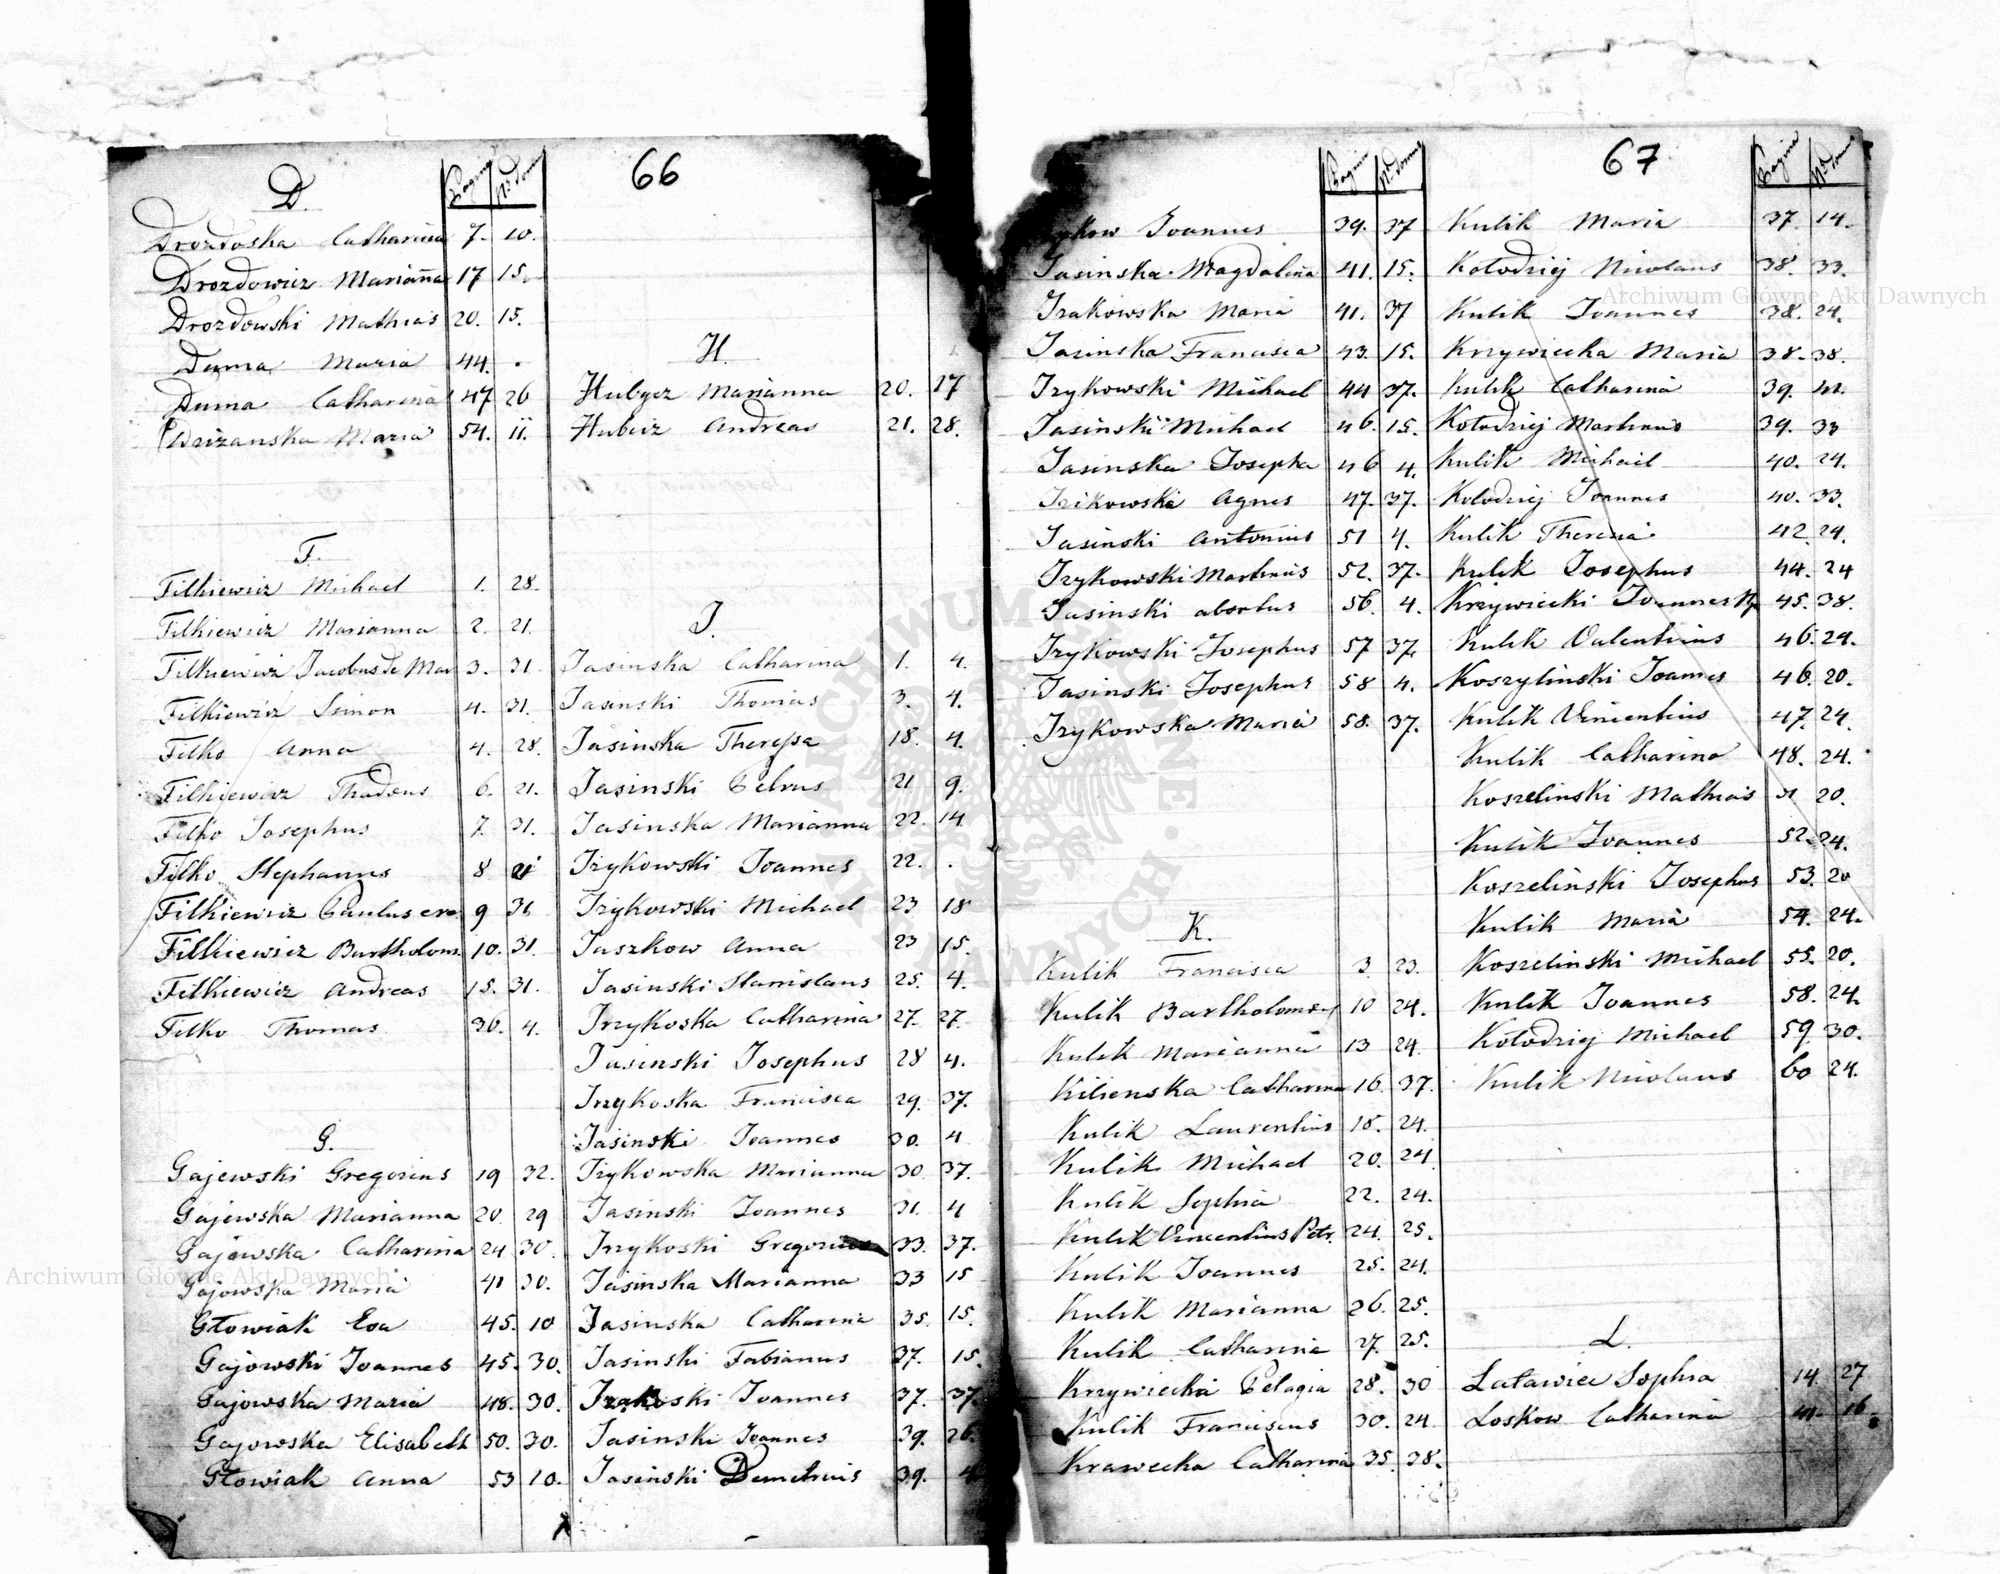 66
D.
Pagina Nr. Domus
Drozdoska Catharina 7. 10.
Drozdowicz Marianna 17 15.
Drozdowski Mathias 20. 15.
Duma Maria 44. .
Duma Catharina 47 26
Maria 54. 11.
F.
Filkiewicz Michael 1. 28.
Filkiewicz Marianna 2. 21.
Filkiewicz Jacobus de Mar 3. 31
Filkiewicz Simon 4. 31.
Filko Anna 4. 28.
Filkiewicz Thadeus 6. 21.
Filko Josephus 7. 31.
Filko Stephanus 8 21
Filkiewicz Paulus 9 31
Filkiewicz Bartholom. 10. 31.
Filkiewicz Andreas 15. 31.
Filko Thomas 36. 4.
G.
Gajewski Gregorius 19 32.
Gajewska Marianna 20 29
Gajewska Catharina 24 30.
Gajowska Maria 41 30.
Głowiak Eva 45. 10
Gajowski Joannes 45. 30.
Gajowska Maria 48. 30.
Gajowska Elisabeth 50. 30.
Głowiak Anna 53 10.
H.
Hubycz Marianna 20. 17
Hubicz Andreas 21. 28.
I.
Jasinska Catharina 1. 4.
Jasinski Thomas 3. 4.
Jasinska Theressa 18. 4.
Jasinski Petrus 21 9.
Jasinska Marianna 22. 14
Irzykowski Joannes 22. .
Irzykowski Michael 23 18
Jaszkow Anna 23 15.
Jasinski Stanislaus 25. 4.
Irzykoska Catharina 27. 27.
Jasinski Josephus 28 4.
Irzykoska Francisca 29. 37.
Jasinski Joannes 30. 4
Irzykowska Marianna 30 37.
Jasinski Joannes 31. 4
Irzykoski Gregorius 33. 37.
Jasinska Marianna 33 15
Jasinska Catharina 35. 15.
Jasinski Fabianus 37. 15.
Joannes 37. 37.
Jasinski Joannes 39. 26.
Jasinski Demetrius 39. 4
67
Pagina Nr. Domus
Joannes 39. 37
Jasinska Magdalena 41. 15.
Izakowska Maria 41. 37
Jasinska Francisca 43. 15.
Izykowski Michael 44 37.
Jasinski Michael 46. 15.
Jasinska Josepha 46 4.
Izikowska Agnes 47. 37.
Jasinski Antonius 51 4.
Izykowski Martinus 52. 37.
Jasinski abortus 56. 4.
Izykowski Josephus 57 37.
Jasinski Josephus 58 4.
Izykowska Maria 58. 37.
K.
Kulik Francisca 3. 23.
Kulik Bartholomey 10 24.
Kulik Marianna 13 24.
Kilienska Catharina 16. 37.
Kulik Laurentius 18. 24.
Kulik Michael 20. 24.
Kulik Sophia 22. 24.
Kulik Vincentius Petr. 24. 25.
Kulik Joannes 25. 24.
Kulik Marianna 26. 25.
Kulik Catharina 27. 25.
Krzywiecka Pelagia 28. 30
Kulik Franciscus 30. 24.
Krawecka Catharina 35. 38.
Pagina Nr. Domus
Kulik Maria 37. 14.
Kołodziej Nicolaus 38. 33.
Kulik Joannes 38. 24.
Krzywiecka Maria 38. 38.
Kulik Catharina 39.
Kołodziej Martinus 39. 33
Kulik Michael 40. 24.
Kołodziej Joannes 40. 33.
Kulik Theresia 42. 24.
Kulik Josephus 44. 24
Krzywiecki Joannes 45. 38.
Kulik Valentinus 46. 24.
Koszylinski Joannes 46. 20.
Kulik Vincentius 47. 24.
Kulik Catharina 48. 24.
Koszelinski Mathias 51 20.
Kulik Joannes 52. 24.
Koszelinski Josephus 53. 20
Kulik Maria 54. 24.
Koszelinski Michael 55. 20.
Kulik Joannes 58. 24.
Kołodziej Michael 59. 30.
Kulik Nicolaus 60 24.
L.
Latawiec Sophia 14. 27
Loskow Catharina 41. 16.
Archiwum Główne Akt Dawnych
Archiwum Główne Akt Dawnych
ARCHIWUM GŁÓWNE AKT DAWNYCH